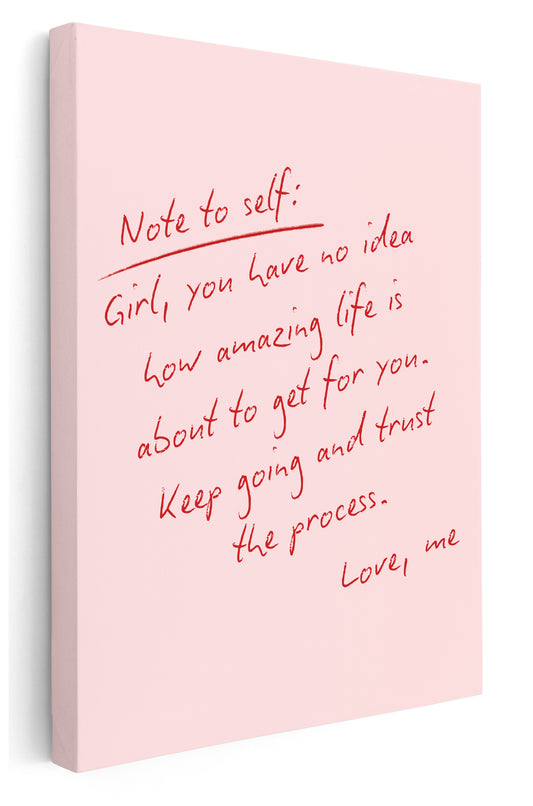 Note to self:
Girl, you have no idea
how amazing life is
about to get for you.
Keep going and trust
the process.
Love, me